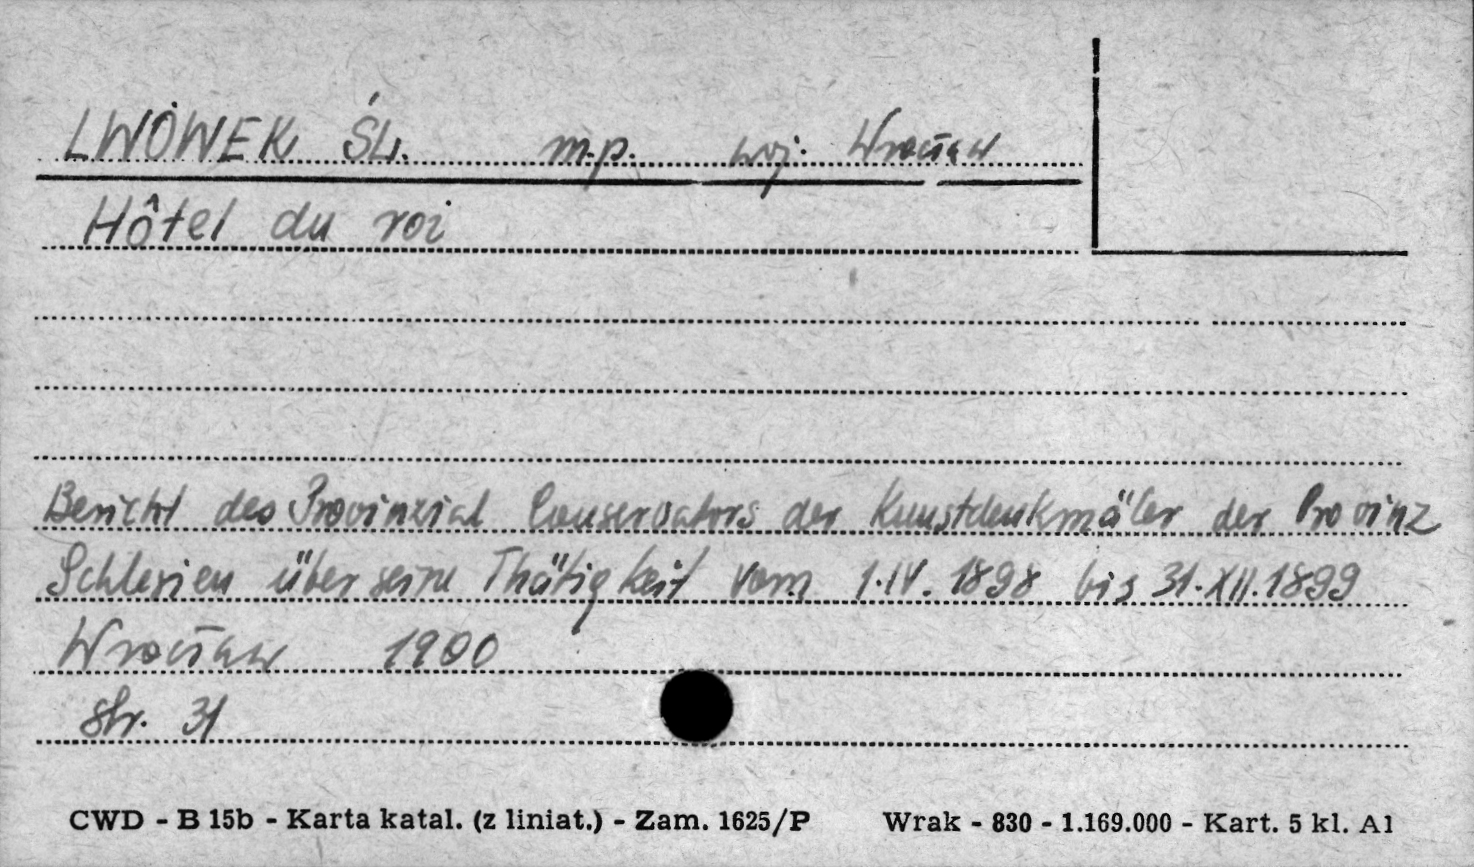 LWÓWEK ŚL. m.p. woj. Wrocław
Hôtel du roi
Bericht des Provinzial Conservators der Kunstdenkmäler der Provinz
Schlesien über seine Thätigkeit vom 1.IV.1898 bis 31.XII.1899
Wrocław 1900
str. 31
CWD - B 15b - Karta katal. (z liniat.) - Zam. 1625/P Wrak - 830 - 1.169.000 - Kart. 5 kl. A1